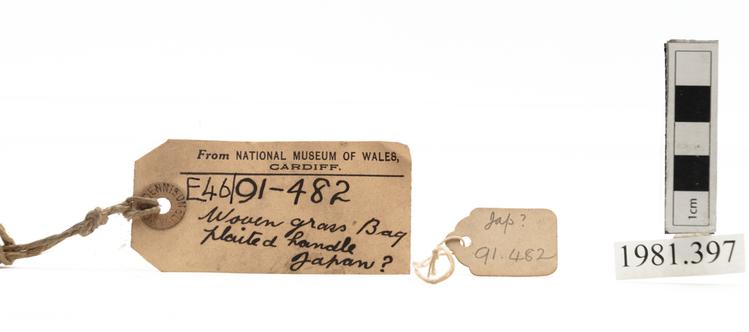 From NATIONAL MUSEUM OF WALES,
CARDIFF.
E46/91-482
Woven grass Bag
plaited handle
Japan?
DENNISON
Jap?
91.482
1cm
1981.397